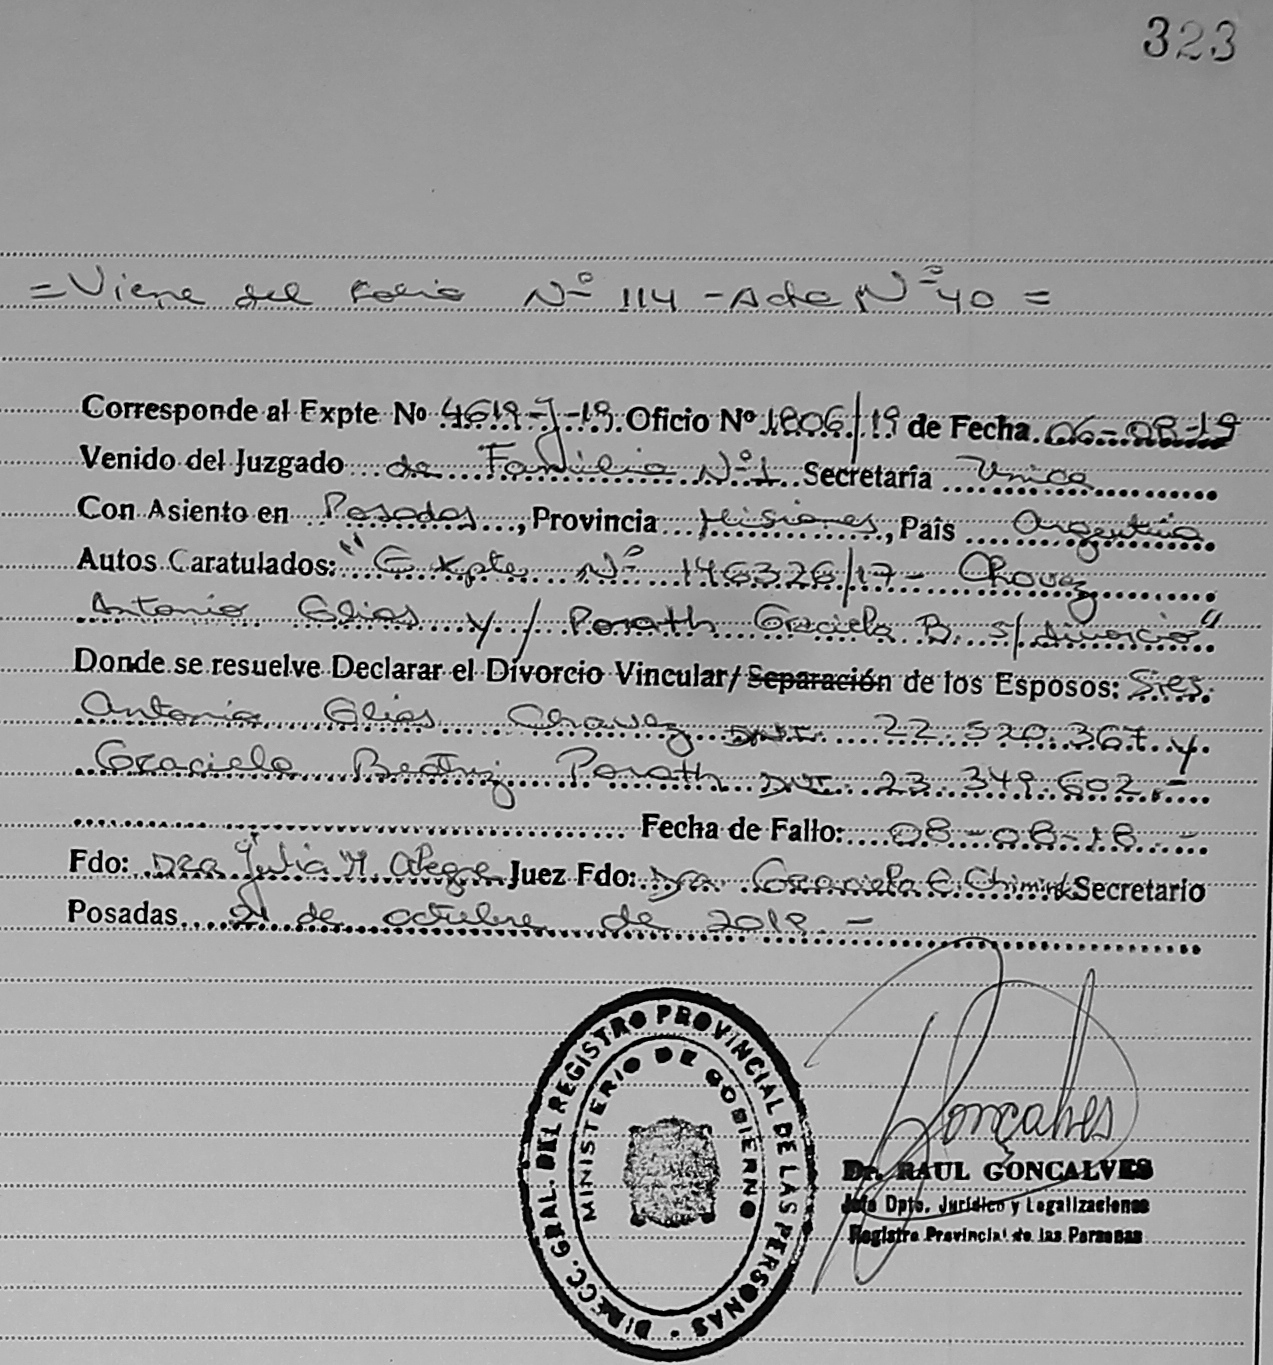 323
= Viene del Folio Nº 114 - Acta Nº 40 =
Corresponde al Expte Nº 4619-J-19 Oficio Nº 1806/19 de Fecha 06-08-19
Venido del Juzgado de Familia Nº 1 Secretaría Unica
Con Asiento en Posadas, Provincia Misiones, País Argentina
Autos Caratulados: "Expte Nº 146326/17 - Chavez
Antonio Elias y/ Porath Graciela B. s/divorcio"
Donde se resuelve Declarar el Divorcio Vincular/Separación de los Esposos: Sres.
Antonio Elias Chavez DNI. 22.520.367 y
Graciela Beatriz Porath DNI. 23.349.602.-
Fecha de Fallo: 08-08-18 -
Fdo: Dra Julia M. Alegre Juez Fdo: Dra. Graciela E. Secretario
Posadas 21 de octubre de 2019.-
DIRECC. GRAL. DEL REGISTRO PROVINCIAL DE LAS PERSONAS
MINISTERIO DE GOBIERNO
Goncalves
Dr. RAUL GONCALVES
Jefe Dpto. Jurídico y Legalizaciones
Registro Provincial de las Personas